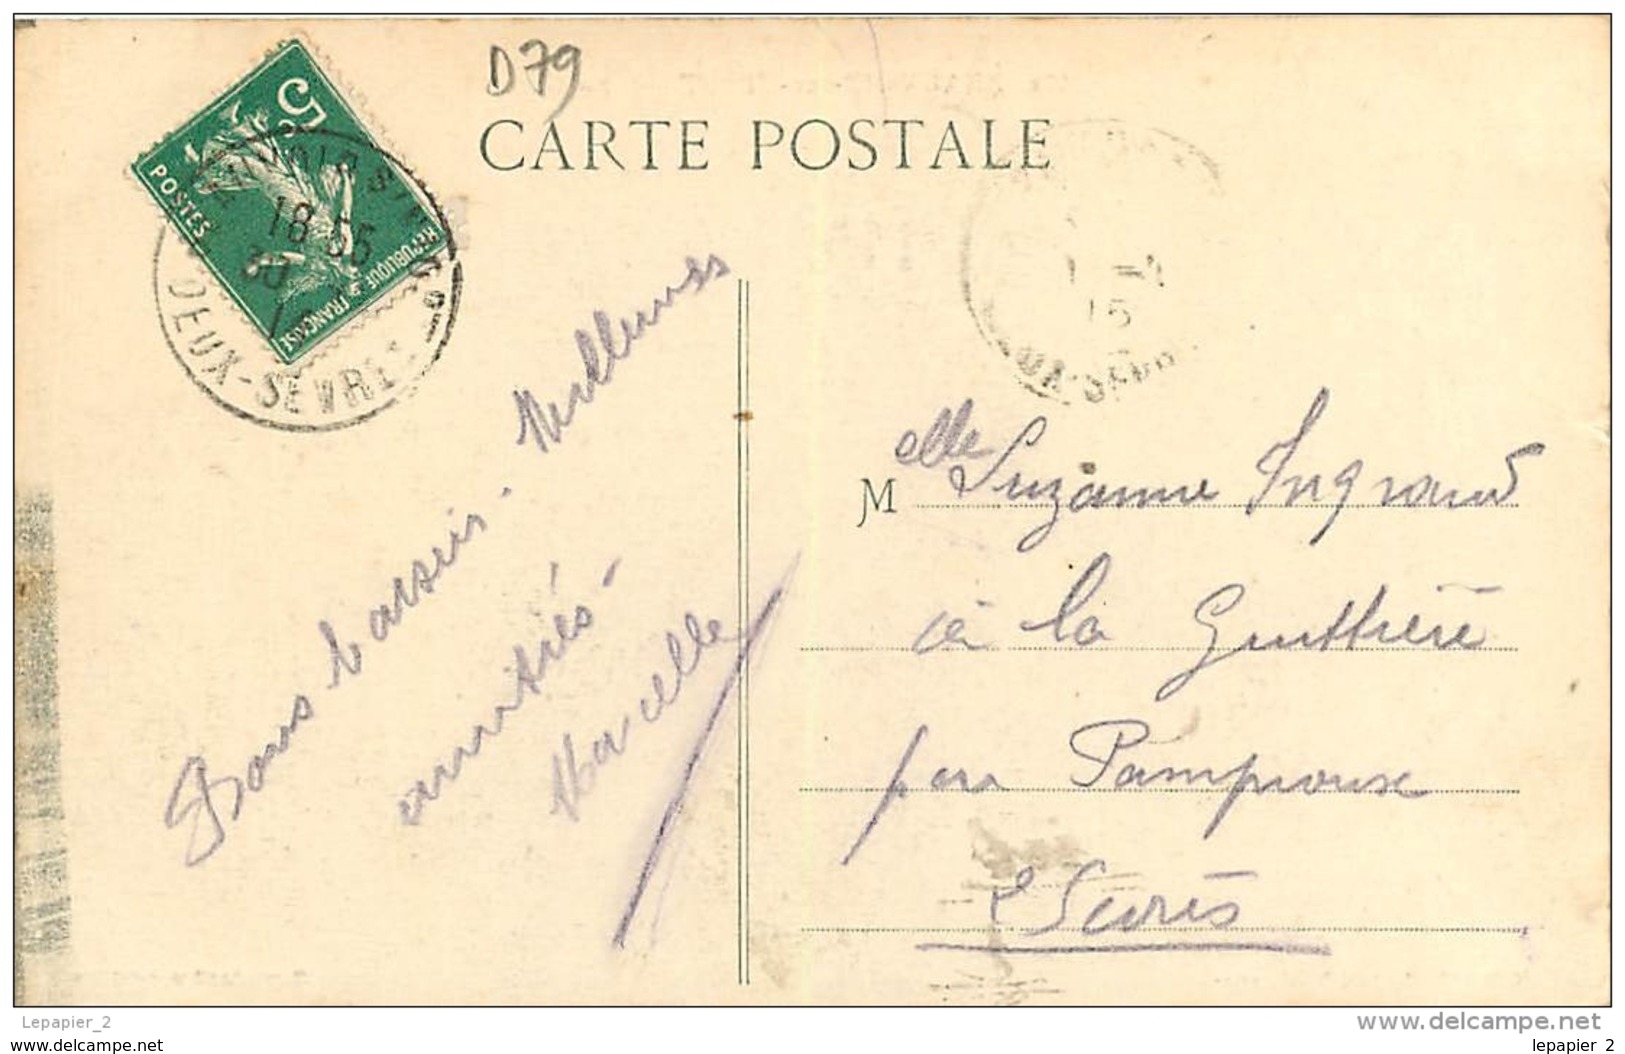 D79
CARTE POSTALE
5
POSTES
REPUBLIQUE FRANÇAISE
18 55
30
DEUX-SEVRES
15
Bons baisers. Meilleures
amitiés.
Marcelle
Melle Suzanne Ingrand
à la Guittière
par Pamproux
2 Sèvres
Lepapier_2
www.delcampe.net
lepapier_2
lepapier_2